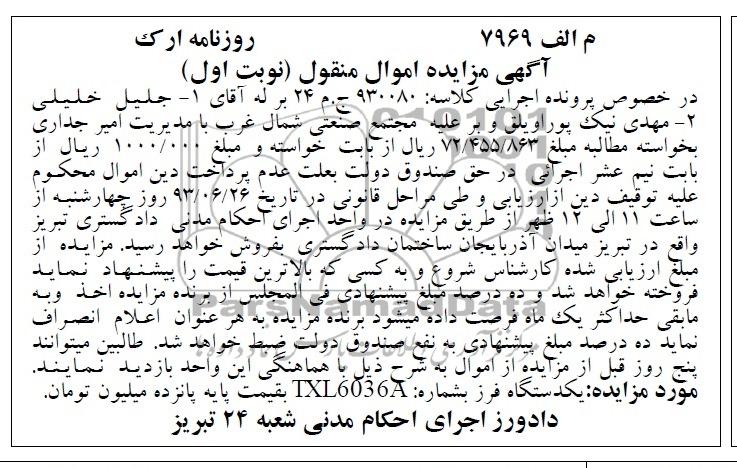 م الف ۷۹۶۹ روزنامه ارک
آگهی مزایده اموال منقول (نوبت اول)
در خصوص پرونده اجرایی کلاسه: ۹۳۰۰۸۰ ج.م ۲۴ بر له آقای ۱- جلیل خلیلی
۲- مهدی نیک پوراویلق و بر علیه مجتمع صنعتی شمال غرب با مدیریت امیر جداری
بخواسته مطالبه مبلغ ۷۲/۴۵۵/۸۶۳ ریال از بابت خواسته و مبلغ ۱۰۰۰/۰۰۰ ریال از
بابت نیم عشر اجرائی در حق صندوق دولت بعلت عدم پرداخت دین اموال محکوم
علیه توقیف دین ازارزیابی و طی مراحل قانونی در تاریخ ۹۳/۰۶/۲۶ روز چهارشنبه از
ساعت ۱۱ الی ۱۲ ظهر از طریق مزایده در واحد اجرای احکام مدنی دادگستری تبریز
واقع در تبریز میدان آذربایجان ساختمان دادگستری بفروش خواهد رسید. مزایده از
مبلغ ارزیابی شده کارشناس شروع و به کسی که بالاترین قیمت را پیشنهاد نماید
فروخته خواهد شد و ده درصد مبلغ پیشنهادی فی المجلس از برنده مزایده اخذ وبه
مابقی حداکثر یک ماه فرصت داده میشود برنده مزایده به هر عنوان اعلام انصراف
نماید ده درصد مبلغ پیشنهادی به نفع صندوق دولت ضبط خواهد شد. طالبین میتوانند
پنج روز قبل از مزایده از اموال به شرح ذیل با هماهنگی این واحد بازدید نمایند.
مورد مزایده:یکدستگاه فرز بشماره: TXL6036A بقیمت پایه پانزده میلیون تومان.
دادورز اجرای احکام مدنی شعبه ۲۴ تبریز
ParsNamadData